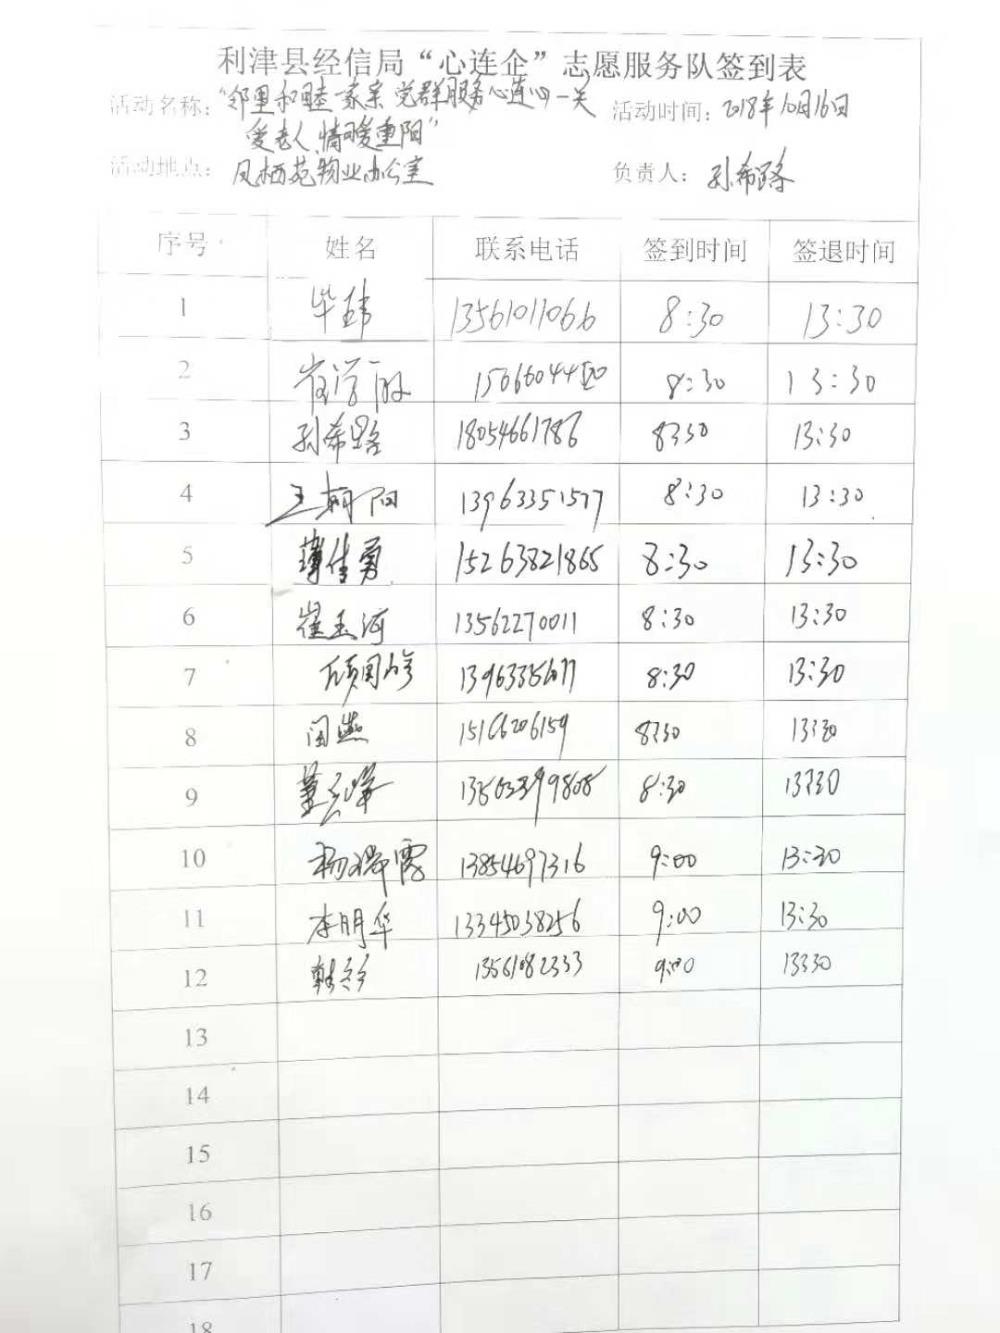 利津县经信局“心连企”志愿服务队签到表
活动名称：“邻里和睦一家亲 党群服务心连心—关 活动时间：2018年10月16日
爱老人 情暖重阳”
活动地点：凤栖苑物业办公室 负责人：孙希路
序号 姓名 联系电话 签到时间 签退时间
1 毕玮 13561011066 8:30 13:30
2 8:30 13:30
3 孙希路 18054661786 8:30 13:30
4 王朝阳 13963351577 8:30 13:30
5 薄佳勇 15263821865 8:30 13:30
6 崔玉河 13562270011 8:30 13:30
7 8:30 13:30
8 闫燕 15166206159 8:30 13:30
9 8:30 13:30
10 杨瑞霞 13854697316 9:00 13:30
11 李明华 13345038256 9:00 13:30
12 13561082333 9:00 13:30
13
14
15
16
17
18